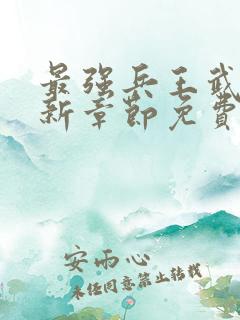 最强兵王武
新章節免費
安雨心
未经同意禁止转载